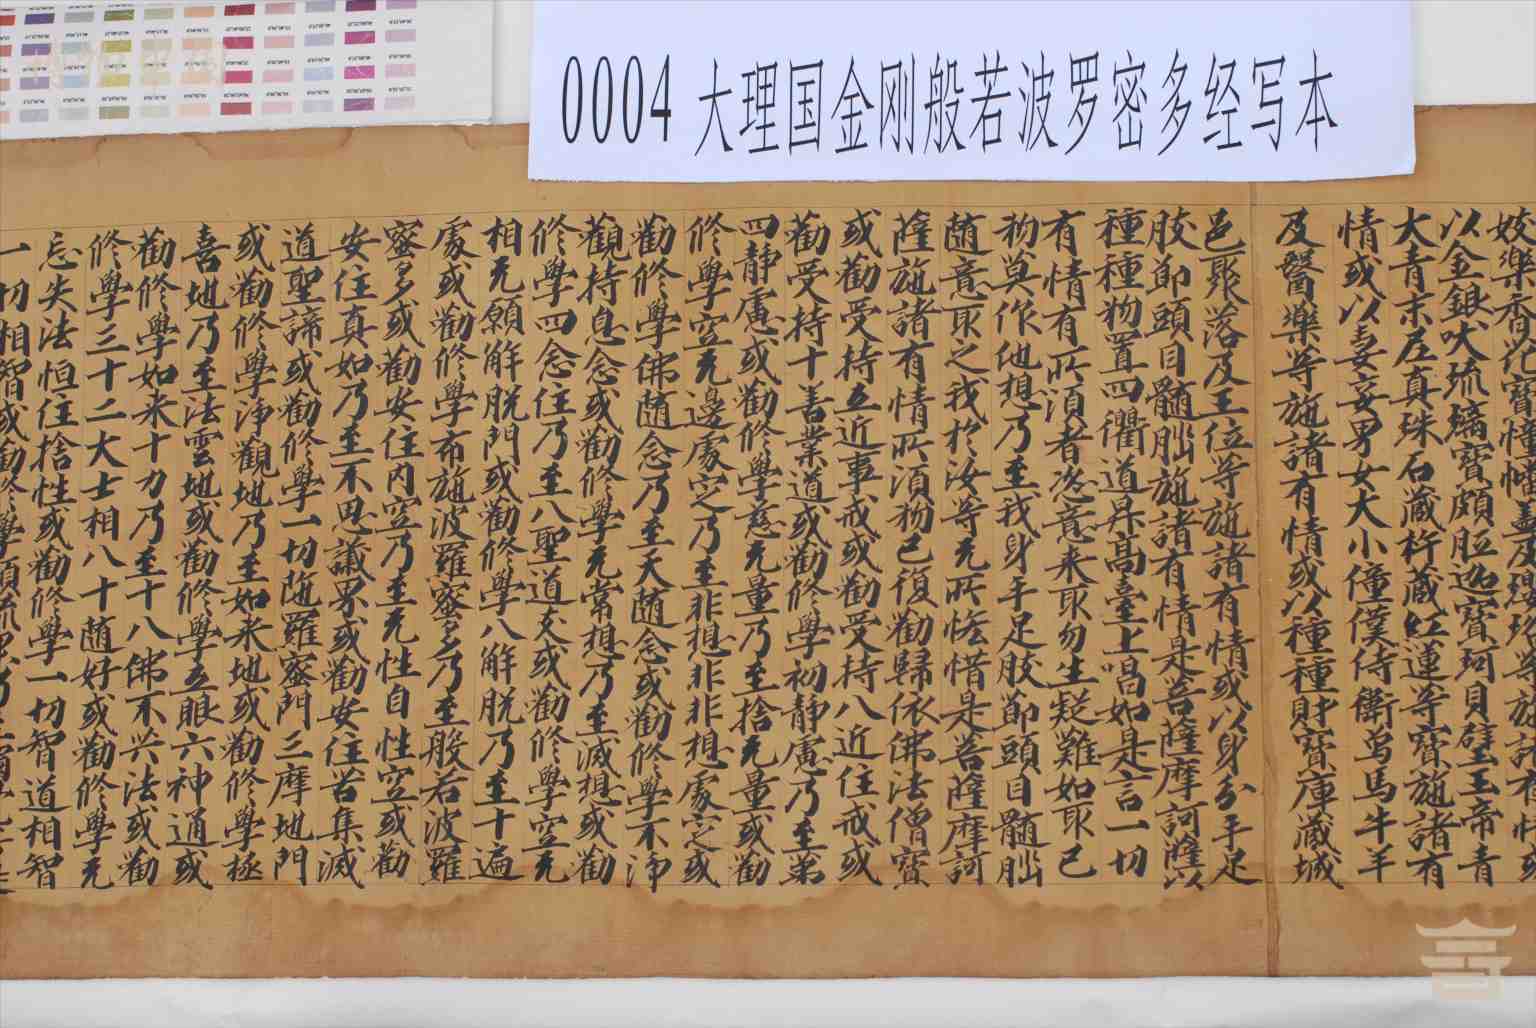 0004 大理国金刚般若波罗密多经写本
以金銀吠琉璃寶頗胝迦寶珂貝璧玉帝青
大青末尼真珠石藏杵藏紅蓮等寶施諸有
情或以妻妾男女大小僮僕侍衛為馬牛羊
及醫藥等施諸有情或以種種財寶庫藏城
邑聚落及王位等施諸有情或以身分手足
肢節頭目髓腦施諸有情是菩薩摩訶薩以
種種物置四衢道昇高臺上唱如是言一切
有情有所須者恣意来取勿生疑難如取己
物莫作他想乃至我身手足肢節頭目髓腦
随意取之我於汝等无所悋惜是菩薩摩訶
薩施諸有情所須物已復勸歸依佛法僧寳
或勸受持五近事戒或勸受持八近住戒或
勸受持十善業道或勸修學初静慮乃至第
四静慮或勸修學慈无量乃至捨无量或勸
修學空无邊處定乃至非想非非想處定或
勸修學佛随念乃至天随念或勸修學不净
觀持息念或勸修學无常想乃至滅想或勸
修學四念住乃至八聖道支或勸修學空无
相无願解脱門或勸修學八解脱乃至十遍
處或勸修學布施波羅蜜多乃至般若波羅
蜜多或勸安住内空乃至无性自性空或勸
安住真如乃至不思議界或勸安住苦集滅
道聖諦或勸修學一切陁羅蜜門三摩地門
或勸修學浄觀地乃至如来地或勸修學極
喜地乃至法雲地或勸修學五眼六神通或
勸修學如来十力乃至十八佛不共法或勸
修學三十二大士相八十随好或勸修學无
忘失法恒住捨性或勸修學一切智道相智